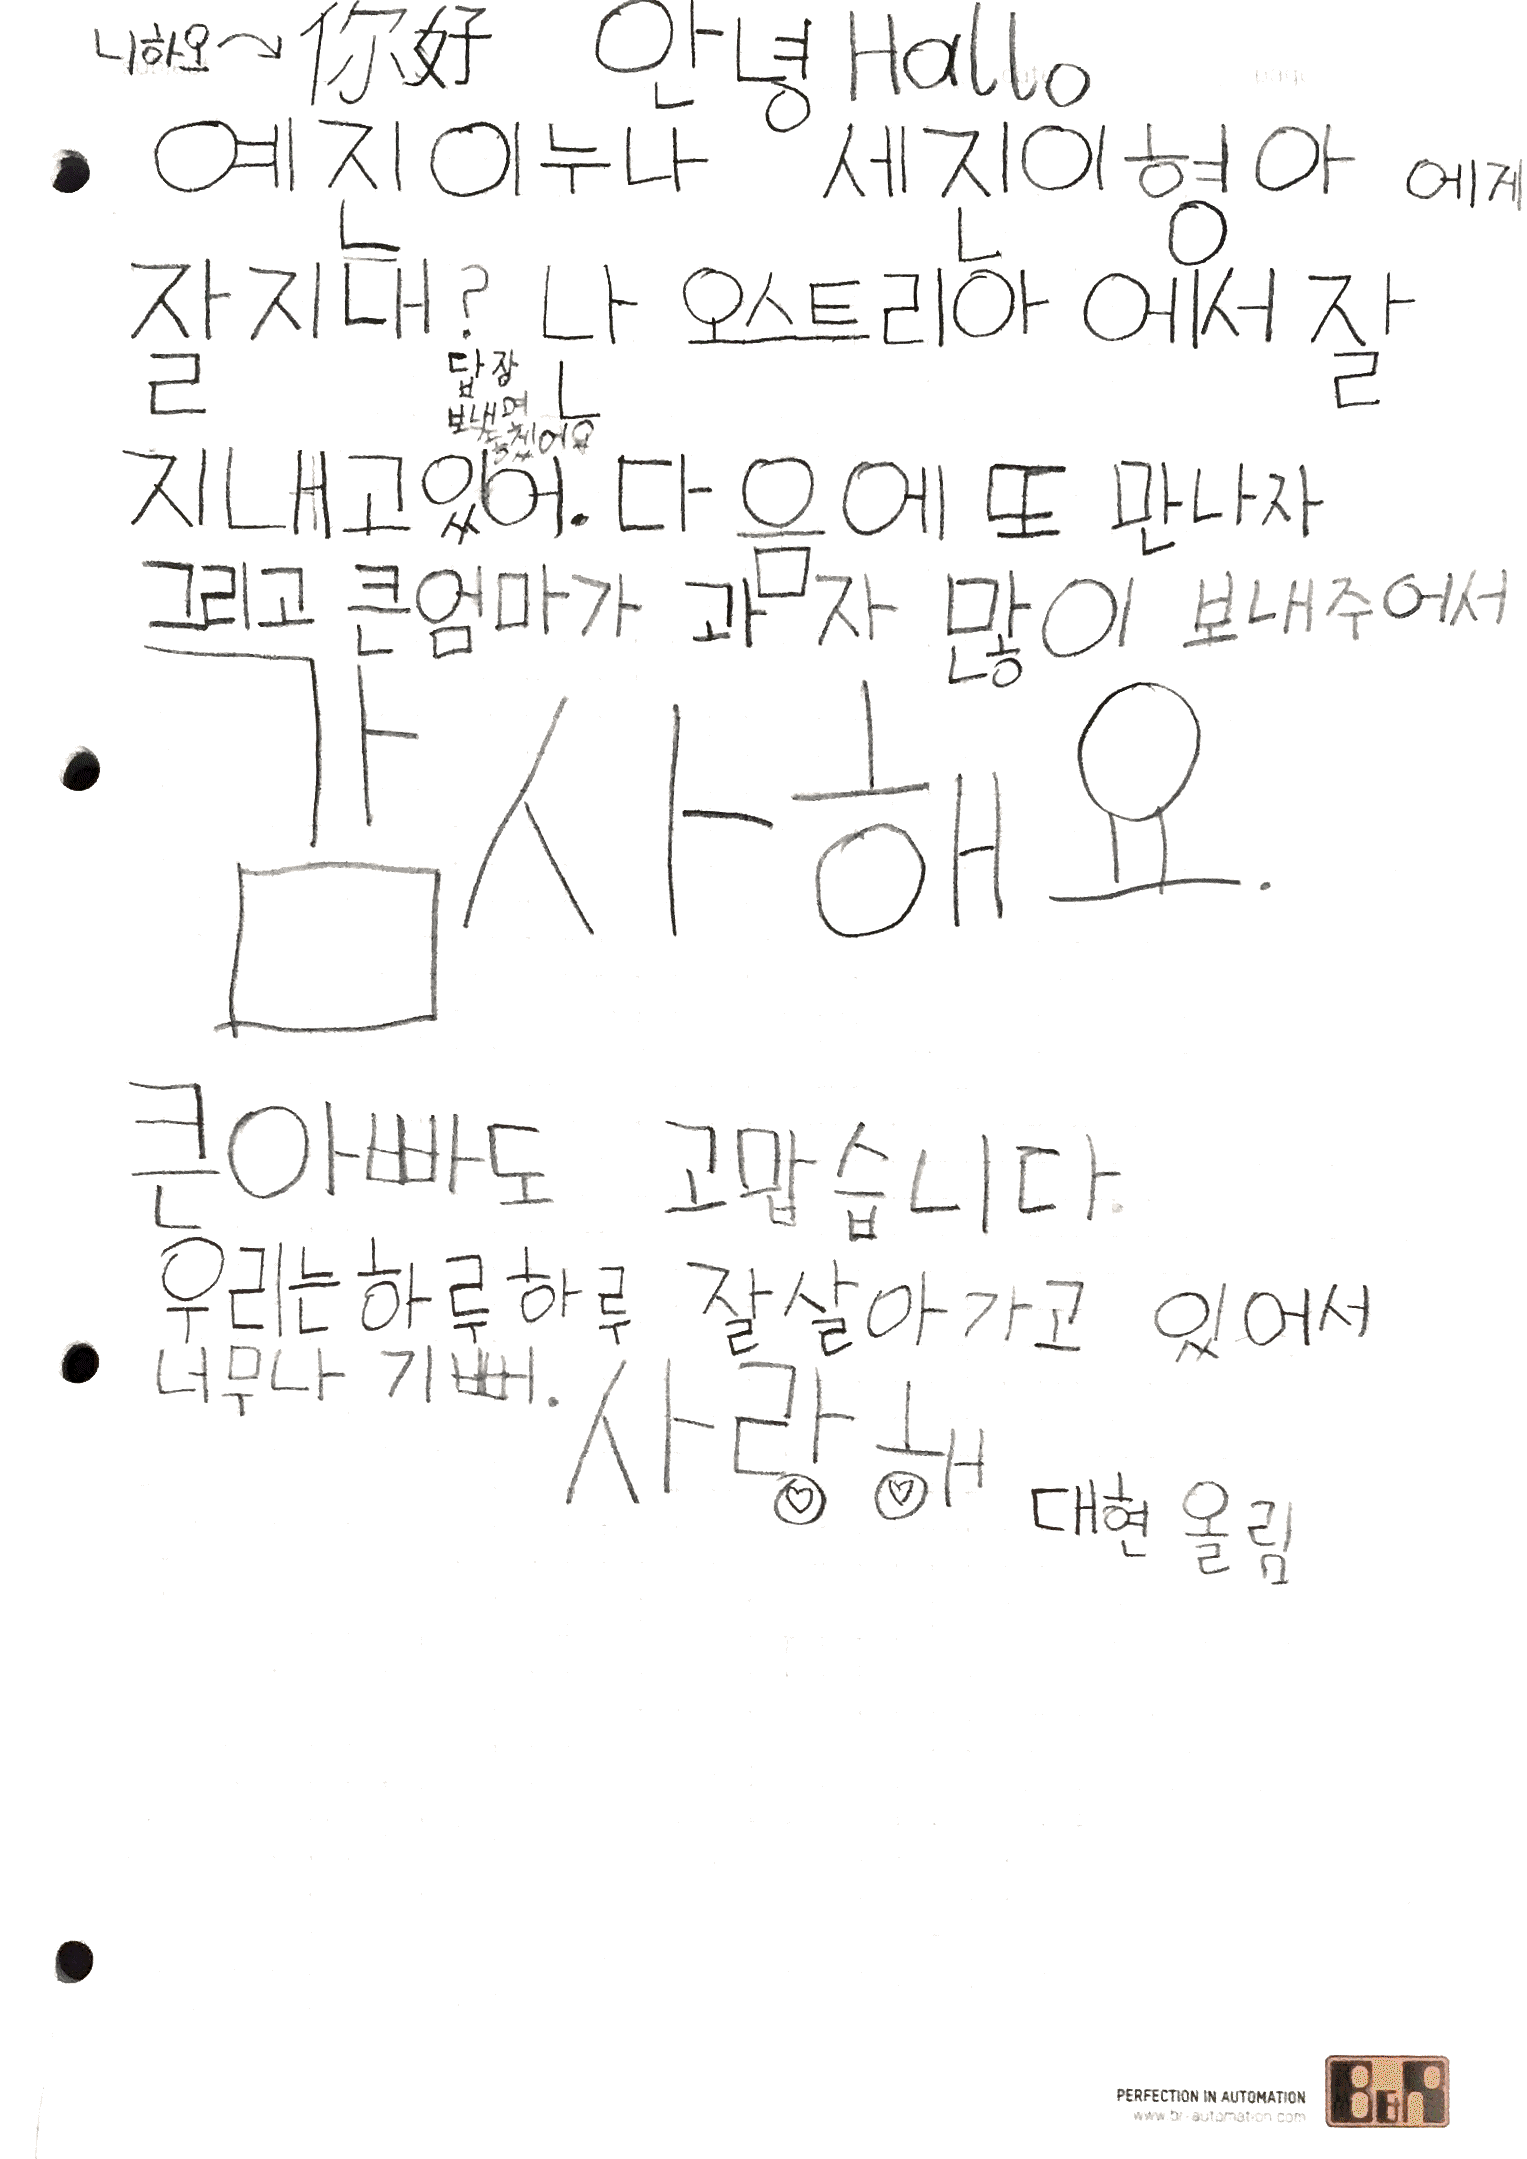 니하오 → 你好 안녕 Hallo
예진이누나 세진이형아 에게
잘지대? 난 오스트리아에서 잘
답장
보내면
좋겠어요
지내고있어. 다음에 또 만나자
그리고 큰엄마가 과자 많이 보내주어서
감사해요.
큰아빠도 고맙습니다.
우리는하루하루 잘살아가고 있어서
너무나 기뻐. 사랑해
대현 올림
PERFECTION IN AUTOMATION
www.br-automation.com
B&R